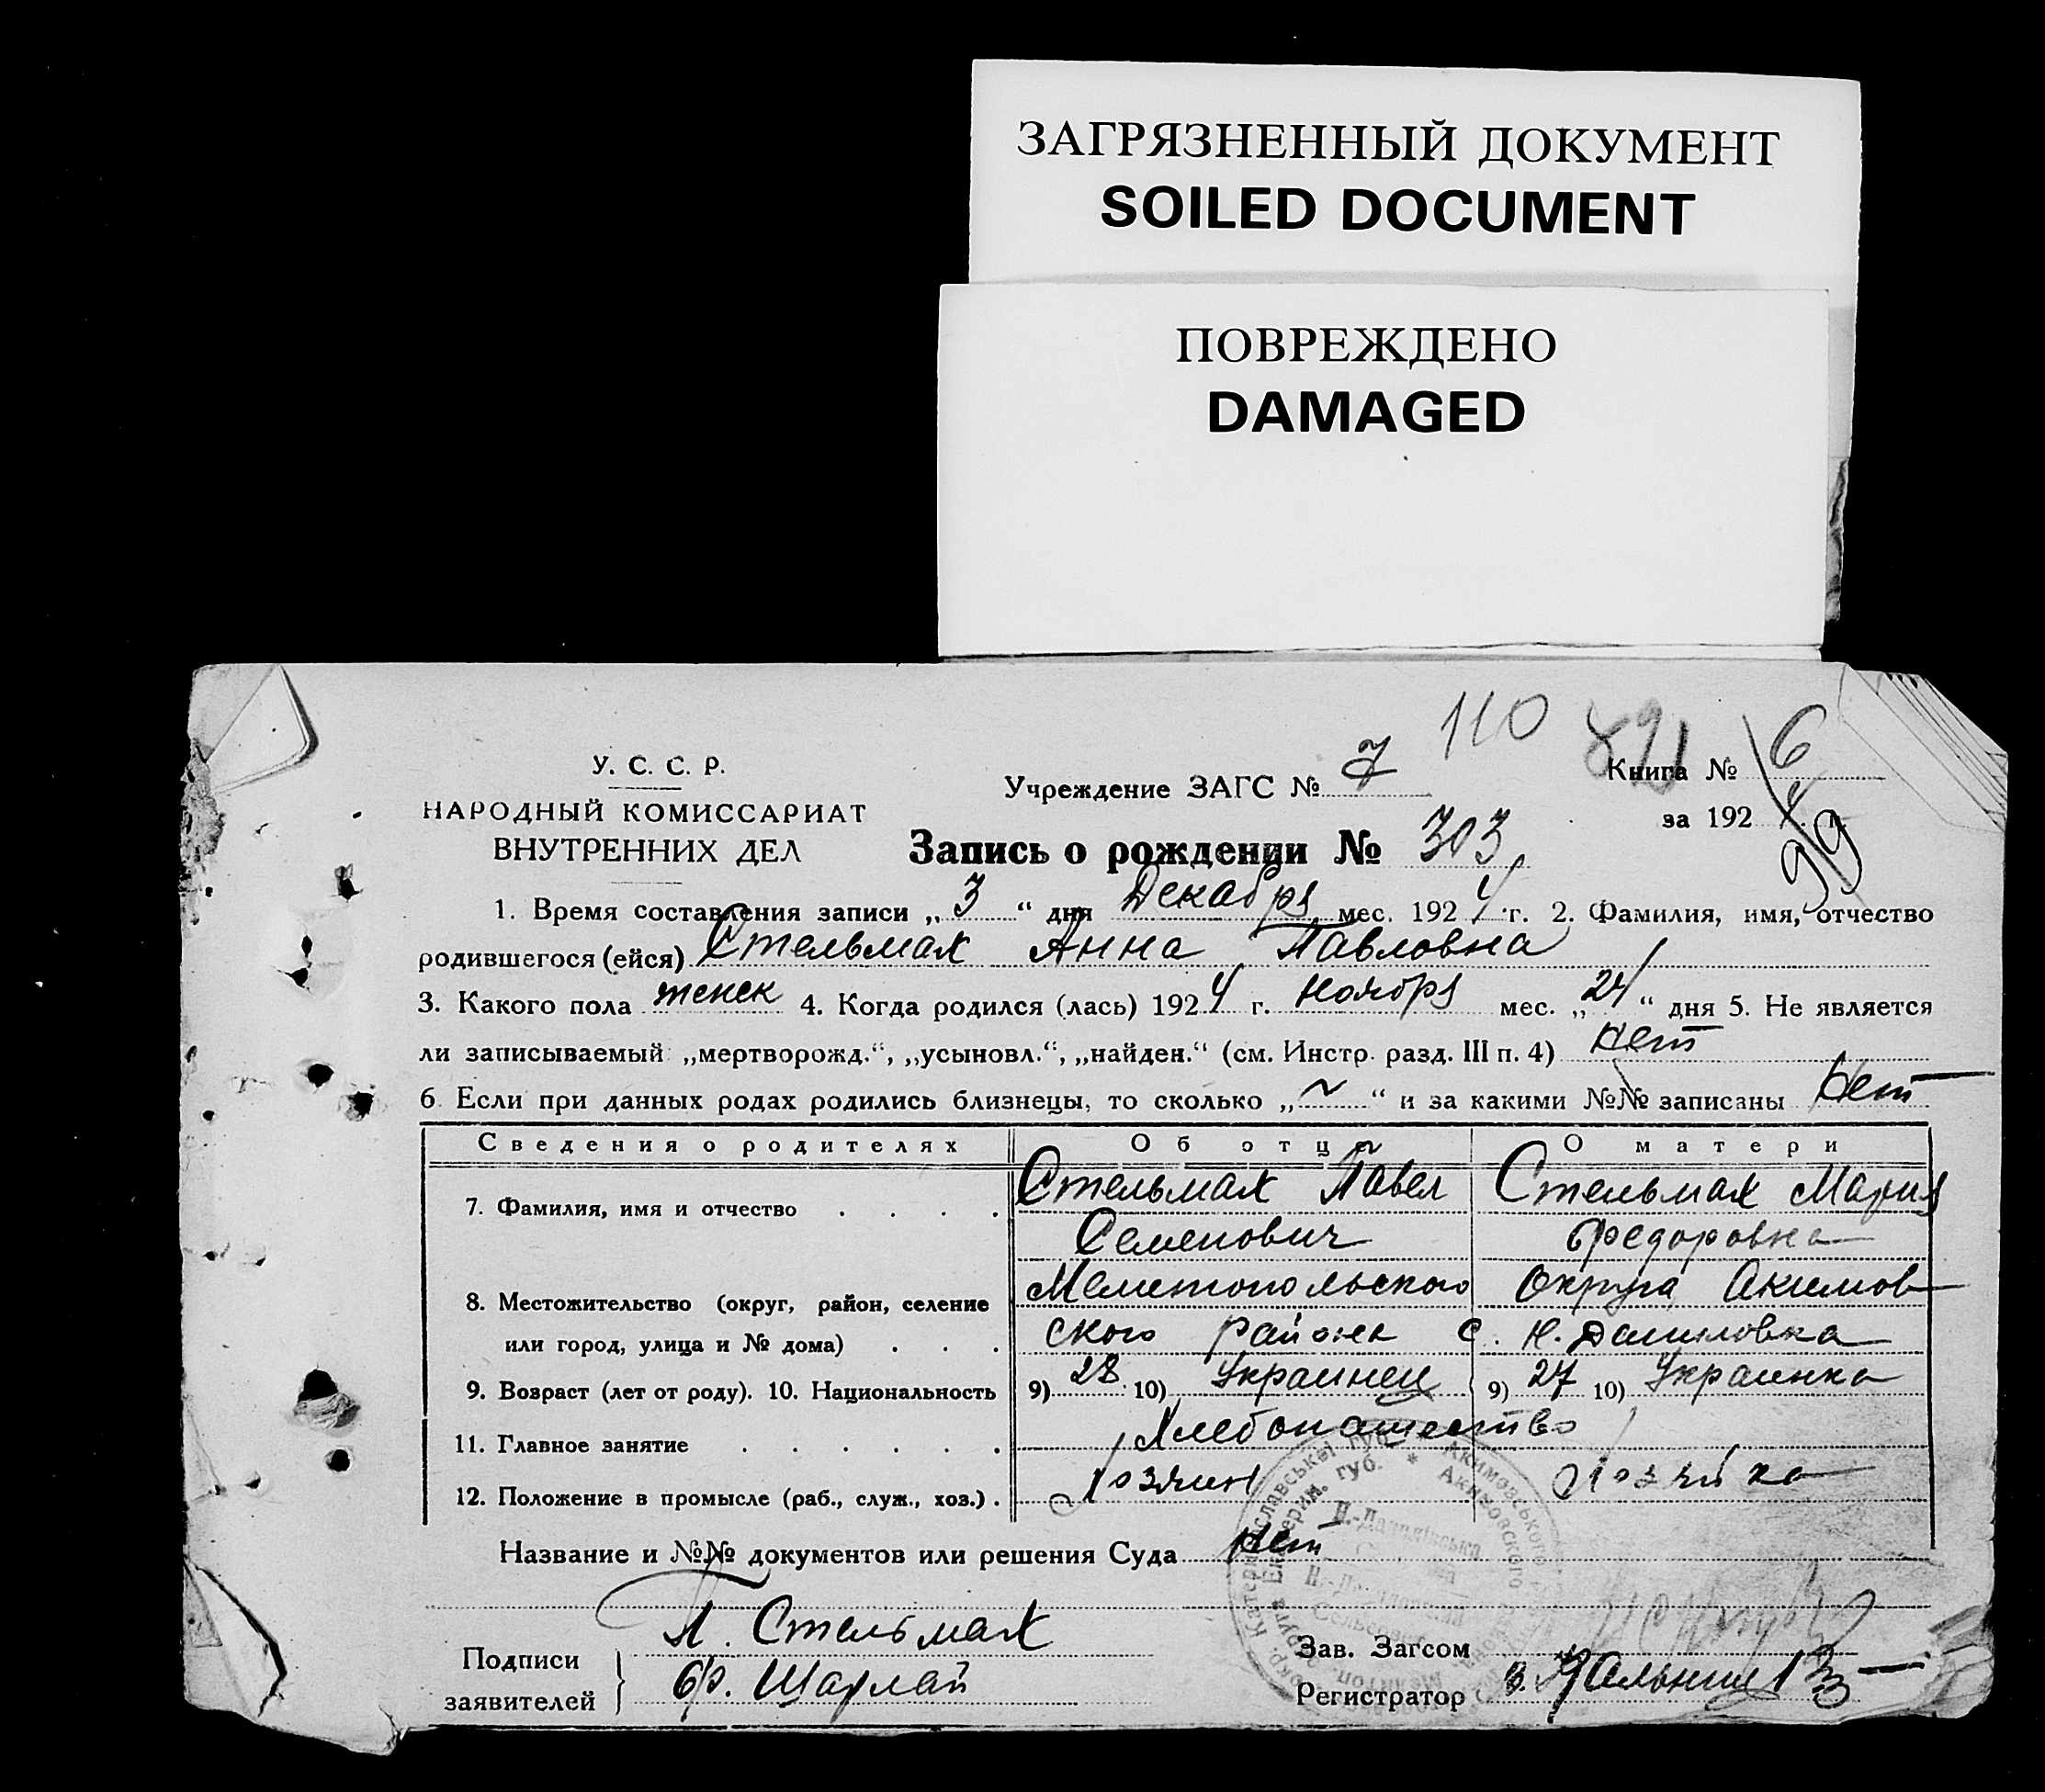 ЗАГРЯЗНЕННЫЙ ДОКУМЕНТ
SOILED DOCUMENT
ПОВРЕЖДЕНО
DAMAGED
110 891
У. С. С. Р.
НАРОДНЫЙ КОМИССАРИАТ
ВНУТРЕННИХ ДЕЛ
Учреждение ЗАГС № 7
Книга № 6
за 1924 г.
99
Запись о рождении № 303
1. Время составления записи „3“ дня Декабря мес. 1924 г. 2. Фамилия, имя, отчество
родившегося (ейся) Стельмах Анна Павловна
3. Какого пола женск 4. Когда родился (лась) 1924 г. Ноября мес. „24“ дня 5. Не является
ли записываемый „мертворожд.“, „усыновл.“, „найден.“ (см. Инстр. разд. III п. 4) нет
6 Если при данных родах родились близнецы, то сколько „~“ и за какими №№ записаны Нет
Сведения о родителях Об отце О матери
7. Фамилия, имя и отчество . . . . Стельмах Павел Стельмах Мария
Семенович Федоровна
8. Местожительство (округ, район, селение Мелитопольского Округа Акимов
или город, улица и № дома) . . . ского района с. Н. Даниловка
9. Возраст (лет от роду). 10. Национальность 9) 28 10) Украинец 9) 27 10) Украинка
11. Главное занятие . . . . . . Хлебопашество
12. Положение в промысле (раб., служ., хоз.) . Хозяин Хозяйка
Название и №№ документов или решения Суда нет
Подписи
заявителей
П. Стельмах
Шарлай
Зав. Загсом
Регистратор